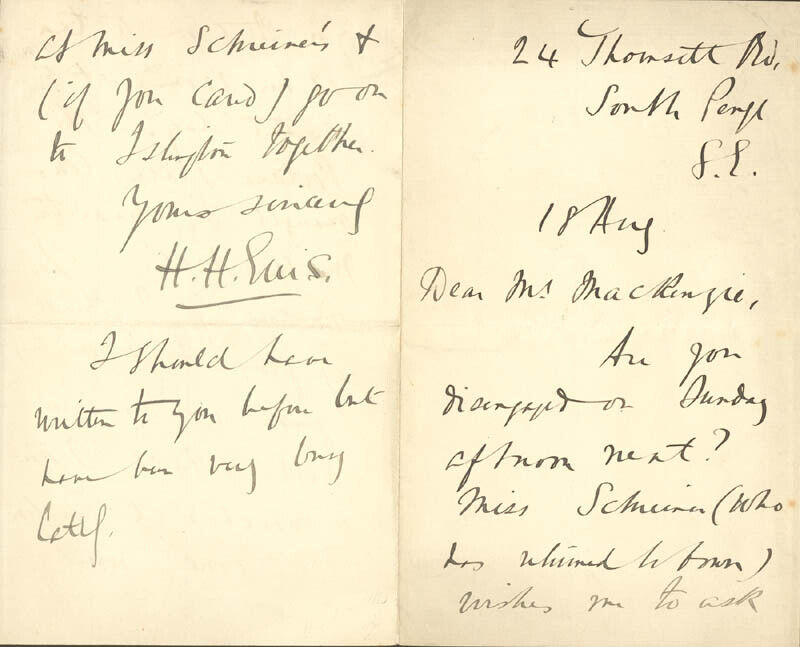 24 Thornsett Rd,
South Penge
S.E.
18 Aug
Dear Mr Mackenzie,
Are you
disengaged on Sunday
afternoon next?
Miss Schreiner (who
has returned to town)
wishes me to ask
at Miss Schreiner's &
(if you care) go on
to Islington together.
Yours sincerely
H. H. Ellis.
I should have
written to you before but
have been very busy
lately.